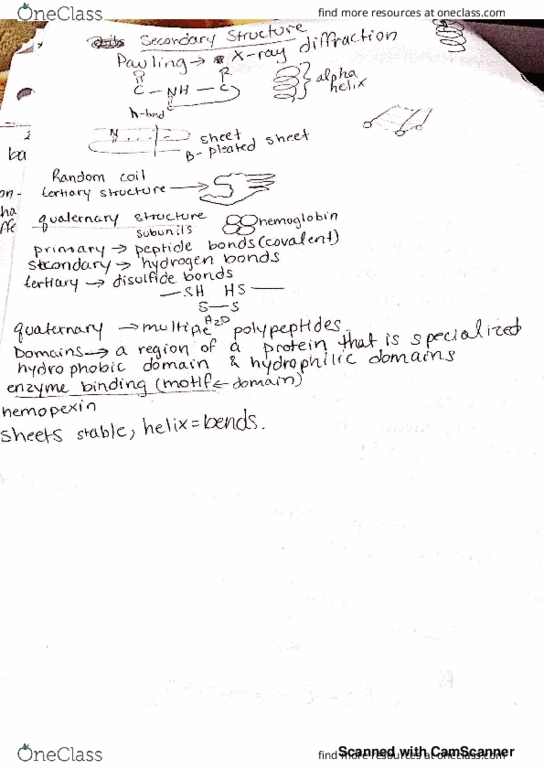 OneClass
find more resources at oneclass.com
Secondary Structure
Pauling → X-ray diffraction
O
R
C - NH - C
alpha
helix
h-bond
N
sheet
B- pleated sheet
ba
Random coil
tertiary structure →
on-
ha
quaternary structure
subunits
hemoglobin
primary → peptide bonds (covalent)
secondary → hydrogen bonds
tertiary → disulfide bonds
—SH HS—
S—S
quaternary → multiple polypeptides
Domains → a region of a protein that is specialized
hydrophobic domain & hydrophilic domains
enzyme binding (motif ← domain)
hemopexin
sheets stable, helix = bends.
OneClass
find more resources at oneclass.com
Scanned with CamScanner